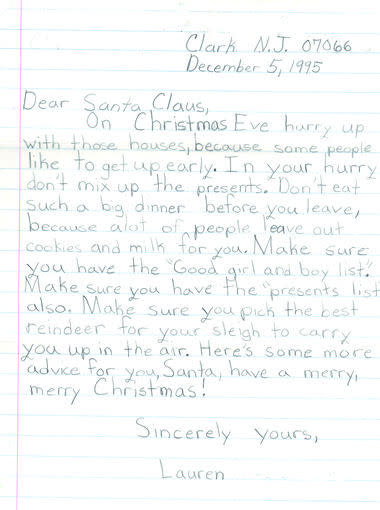 Clark N.J. 07066
December 5, 1995
Dear Santa Claus,
On Christmas Eve hurry up
with those houses, because some people
like to get up early. In your hurry
don't mix up the presents. Don't eat
such a big dinner before you leave,
because alot of people leave out
cookies and milk for you. Make sure
you have the "Good girl and boy list."
Make sure you have the "presents list
also. Make sure you pick the best
reindeer for your sleigh to carry
you up in the air. Here's some more
advice for you, Santa, have a merry,
merry Christmas!
Sincerely yours,
Lauren